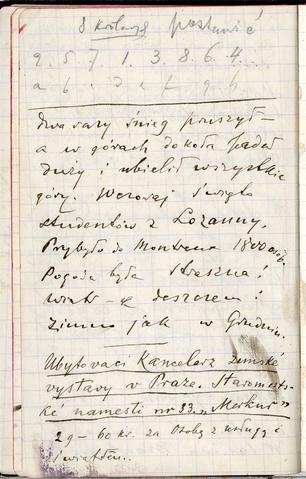 8 Królowych postawić
2. 5. 7. 1. 3. 8. 6. 4.
a b . d e f g h.
dwa razy śnieg pruszył –
a w górach dokoła padał
duży i ubielił wszystkie
góry. Wczoraj święto
studentów z Lozanny.
Przybyło do Montreux 1800 osób.
Pogoda była straszna!
wiatr z deszczem!
Zimno jak w Grudniu.
Ubytovaci Kancelarz zemské
vystavy v Praze. Staromests-
ké namesti nr 33. „Merkur”
29 – 60 kr. za Osobę z usługą i
światłem.